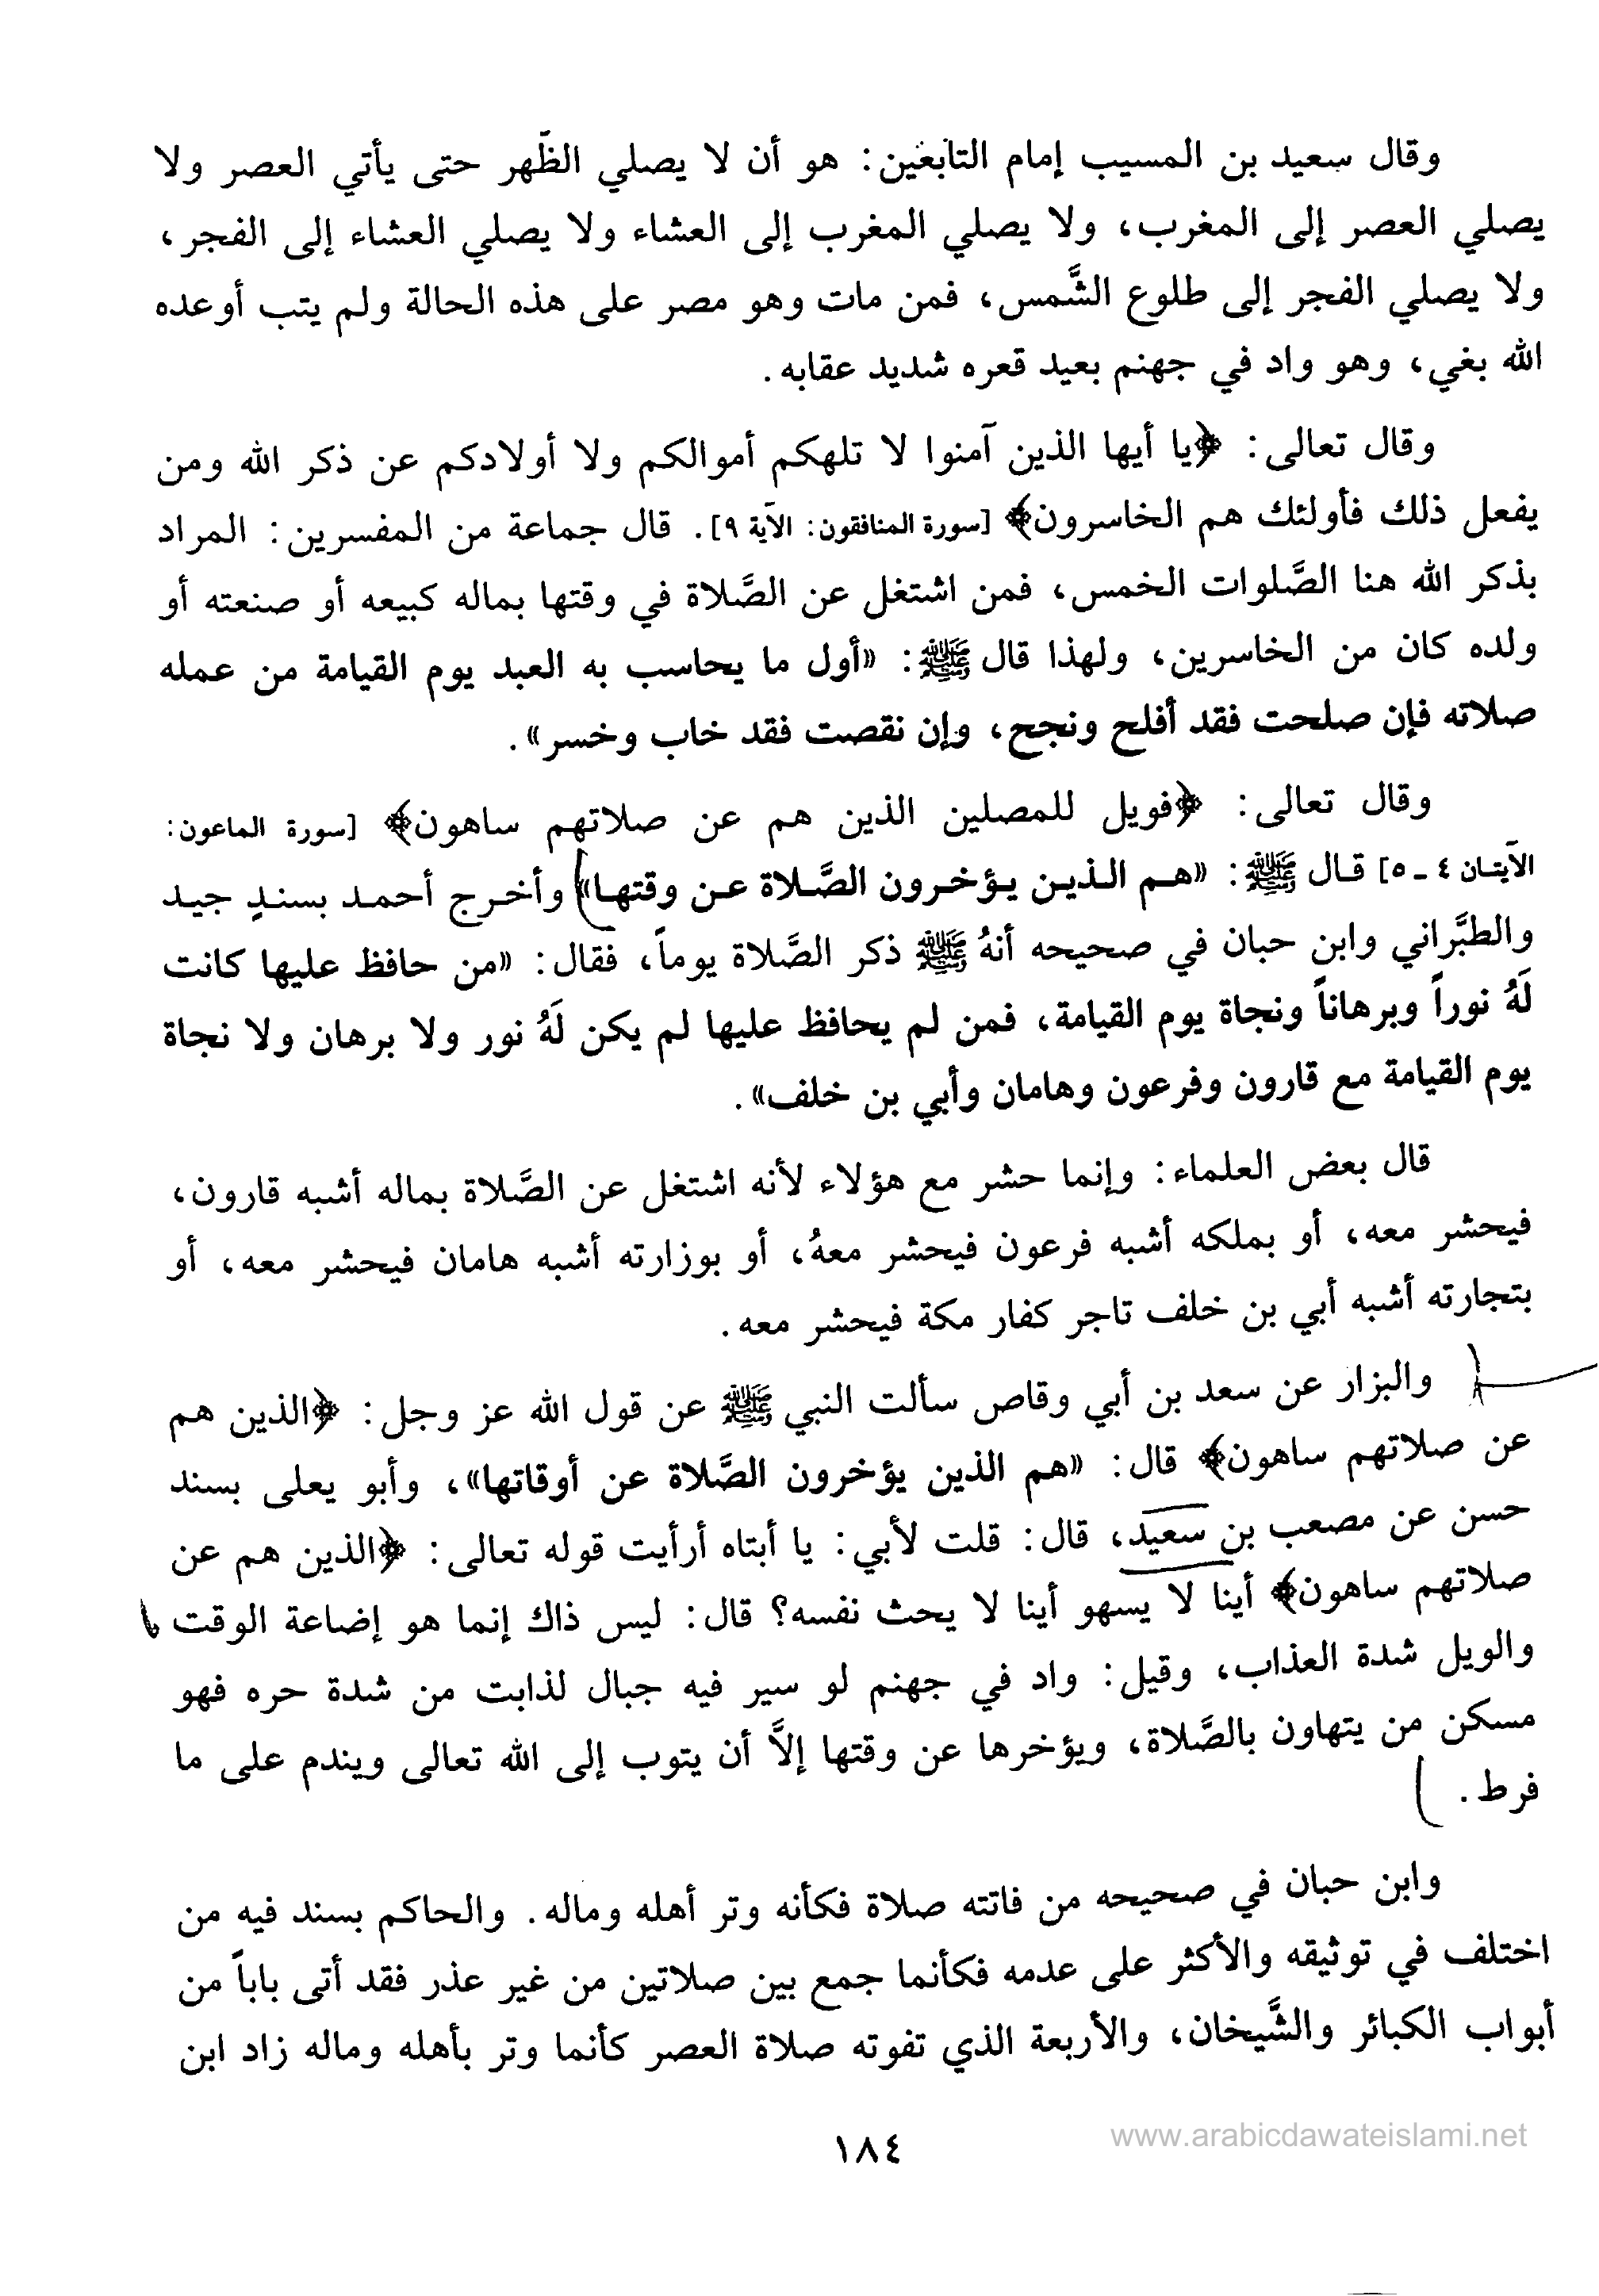 وقال سعيد بن المسيب إمام التابعين: هو أن لا يصلي الظّهر حتى يأتي العصر ولا
يصلي العصر إلى المغرب، ولا يصلي المغرب إلى العشاء ولا يصلي العشاء إلى الفجر،
ولا يصلي الفجر إلى طلوع الشَّمس، فمن مات وهو مصر على هذه الحالة ولم يتب أوعده
الله بغي، وهو واد في جهنم بعيد قعره شديد عقابه.
وقال تعالى: ﴿يا أيها الذين آمنوا لا تلهكم أموالكم ولا أولادكم عن ذكر الله ومن
يفعل ذلك فأولئك هم الخاسرون﴾ [سورة المنافقون: الآية ٩]. قال جماعة من المفسرين: المراد
بذكر الله هنا الصَّلوات الخمس، فمن اشتغل عن الصَّلاة في وقتها بماله كبيعه أو صنعته أو
ولده كان من الخاسرين، ولهذا قال ﷺ: «أول ما يحاسب به العبد يوم القيامة من عمله
صلاته فإن صلحت فقد أفلح ونجح، وإن نقصت فقد خاب وخسر».
وقال تعالى: ﴿فويل للمصلين الذين هم عن صلاتهم ساهون﴾ [سورة الماعون:
الآيتان ٤ ـ ٥] قال ﷺ: «هم الذين يؤخرون الصَّلاة عن وقتها» وأخرج أحمد بسندٍ جيد
والطبَّراني وابن حبان في صحيحه أنهُ ﷺ ذكر الصَّلاة يوماً، فقال: «من حافظ عليها كانت
لَهُ نوراً وبرهاناً ونجاة يوم القيامة، فمن لم يحافظ عليها لم يكن لَهُ نور ولا برهان ولا نجاة
يوم القيامة مع قارون وفرعون وهامان وأبي بن خلف».
قال بعض العلماء: وإنما حشر مع هؤلاء لأنه اشتغل عن الصَّلاة بماله أشبه قارون،
فيحشر معه، أو بملكه أشبه فرعون فيحشر معهُ، أو بوزارته أشبه هامان فيحشر معه، أو
بتجارته أشبه أبي بن خلف تاجر كفار مكة فيحشر معه.
والبزار عن سعد بن أبي وقاص سألت النبي ﷺ عن قول الله عز وجل: ﴿الذين هم
عن صلاتهم ساهون﴾ قال: «هم الذين يؤخرون الصَّلاة عن أوقاتها»، وأبو يعلى بسند
حسن عن مصعب بن سعيد، قال: قلت لأبي: يا أبتاه أرأيت قوله تعالى: ﴿الذين هم عن
صلاتهم ساهون﴾ أينا لا يسهو أينا لا يحث نفسه؟ قال: ليس ذاك إنما هو إضاعة الوقت
والويل شدة العذاب، وقيل: واد في جهنم لو سير فيه جبال لذابت من شدة حره فهو
مسكن من يتهاون بالصَّلاة، ويؤخرها عن وقتها إلاَّ أن يتوب إلى الله تعالى ويندم على ما
فرط.
وابن حبان في صحيحه من فاتته صلاة فكأنه وتر أهله وماله. والحاكم بسند فيه من
اختلف في توثيقه والأكثر على عدمه فكأنما جمع بين صلاتين من غير عذر فقد أتى باباً من
أبواب الكبائر والشَّيخان، والأربعة الذي تفوته صلاة العصر كأنما وتر بأهله وماله زاد ابن
١٨٤
www.arabicdawateislami.net